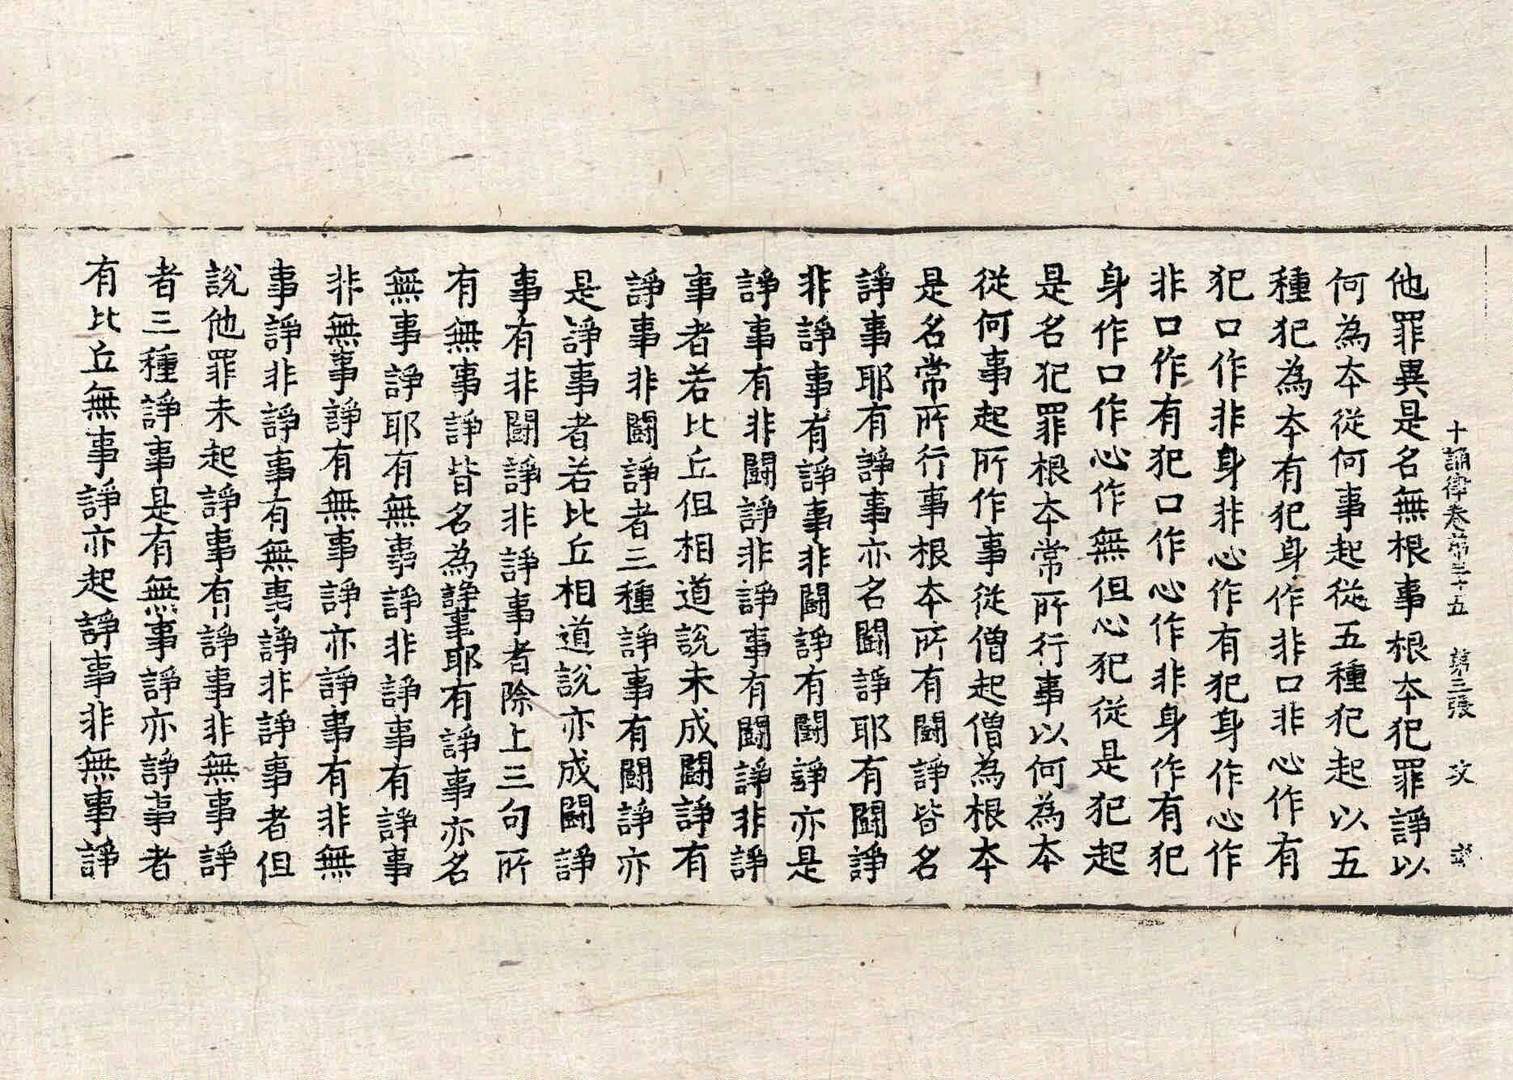 十誦律卷第三十五 第三張 攻
他罪異是名無根事根本犯罪諍以
何為本從何事起從五種犯起以五
種犯為本有犯身作非口非心作有
犯口作非身非心作有犯身作心作
非口作有犯口作心作非身作有犯
身作口作心作無但心犯從是犯起
是名犯罪根本常所行事以何為本
從何事起所作事從僧起僧為根本
是名常所行事根本所有鬪諍皆名
諍事耶有諍事亦名鬪諍耶有鬪諍
非諍事有諍事非鬪諍有鬪諍亦是
諍事有非鬪諍非諍事有鬪諍非諍
事者若比丘但相道說未成鬪諍有
諍事非鬪諍者三種諍事有鬪諍亦
是諍事者若比丘相道說亦成鬪諍
事有非鬪諍非諍事者除上三句所
有無事諍皆名為諍事耶有諍事亦名
無事諍耶有無事諍非諍事有諍事
非無事諍有無事諍亦諍事有非無
事諍非諍事有無事諍非諍事者但
說他罪未起諍事有諍事非無事諍
者三種諍事是有無事諍亦諍事者
有比丘無事諍亦起諍事非無事諍